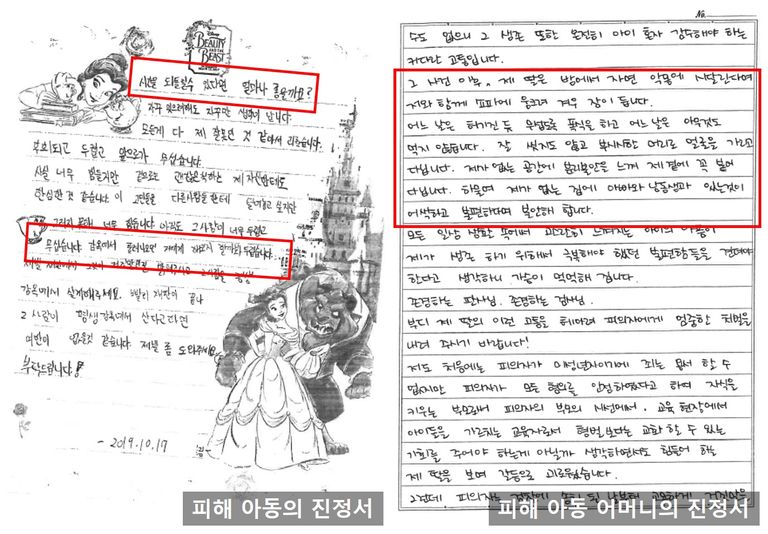 Disney
BEAUTY AND THE BEAST
시간을 되돌릴수 있다면 얼마나 좋을까요?
자꾸 잊으려해도 자꾸만 생각이 납니다.
모든게 다 제 잘못인 것 같아서 괴롭습니다.
후회되고 두렵고 앞으로가 무섭습니다.
사실 너무 힘들지만 겉으로는 괜찮은척하는 제 자신한테도
한심한것 같습니다 이 고민들을 다른사람들한테 싶지만
그러지 못해 너무 힘듭니다 아직도 그사람이 너무 두렵고
무섭습니다 감옥에서 풀려나오면 저에게 해코지 할까봐 두렵습니다...
제발 그사람을 평생
감옥에서 살게해주세요. 빨리 재판이 끝나
그 사람이 평생감옥에서 산다고라면
여한이 없을것 같습니다 제발 좀 도와주세요.
부탁드립니다!
- 2019.10.17
피해 아동의 진정서
No.
수도 없으니 그 생존 또한 온전히 아이 혼자 감수해야 하는
커다란 고통입니다.
그 사건 이후, 제 딸은 밤에서 자면 악몽에 시달린다며
저와 함께 소파에 웅크려 겨우 잠이 듭니다.
어느 날은 허기진 듯 무섭도록 폭식을 하고 어느 날은 아무것도
먹지 않습니다. 잘 씻지도 않고 부시시한 머리로 얼굴을 가리고
다닙니다. 제가 없는 공간에 불안을 느껴 제 곁에 꼭 붙어
다닙니다. 하물며 제가 없는 집에 아빠와 남동생과 있는것이
어색하고 불편하다며 불안해 합니다.
모든 일상 생활 속에서 고스란히 느껴지는 아이의 아픔이
제가 생존 하기 위해서 극복해야 했던 불편함들을 견뎌야
한다고 생각하니 가슴이 먹먹해 집니다.
존경하는 판사님. 존경하는 검사님.
부디 제 딸의 이런 고통을 헤아려 피의자에게 엄중한 처벌을
내려 주시기 바랍니다!
저도 처음에는 피의자가 미성년자이기에 죄는 용서 할 수
없지만 피의자가 모든 혐의를 인정하였다고 하여 자식을
키우는 부모로서 피의자의 부모의 시선에서, 교육 현장에서
아이들을 가르치는 교육자로서 형벌 보다는 교화 할 수 있는
기회를 주어야 하는게 아닐까 생각하면서도 힘들어 하는
제 딸을 보며 갈등으로 괴로웠습니다.
그런데 피의자는
피해 아동 어머니의 진정서